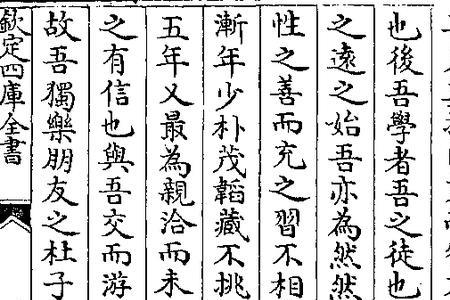 也後吾學者吾之徒也
之遠之始吾亦為然然
性之善而充之習不相
漸年少朴茂韜藏不挑
五年又最為親洽而未
之有信也與吾交而游
故吾獨樂朋友之杜子
欽定四庫全書